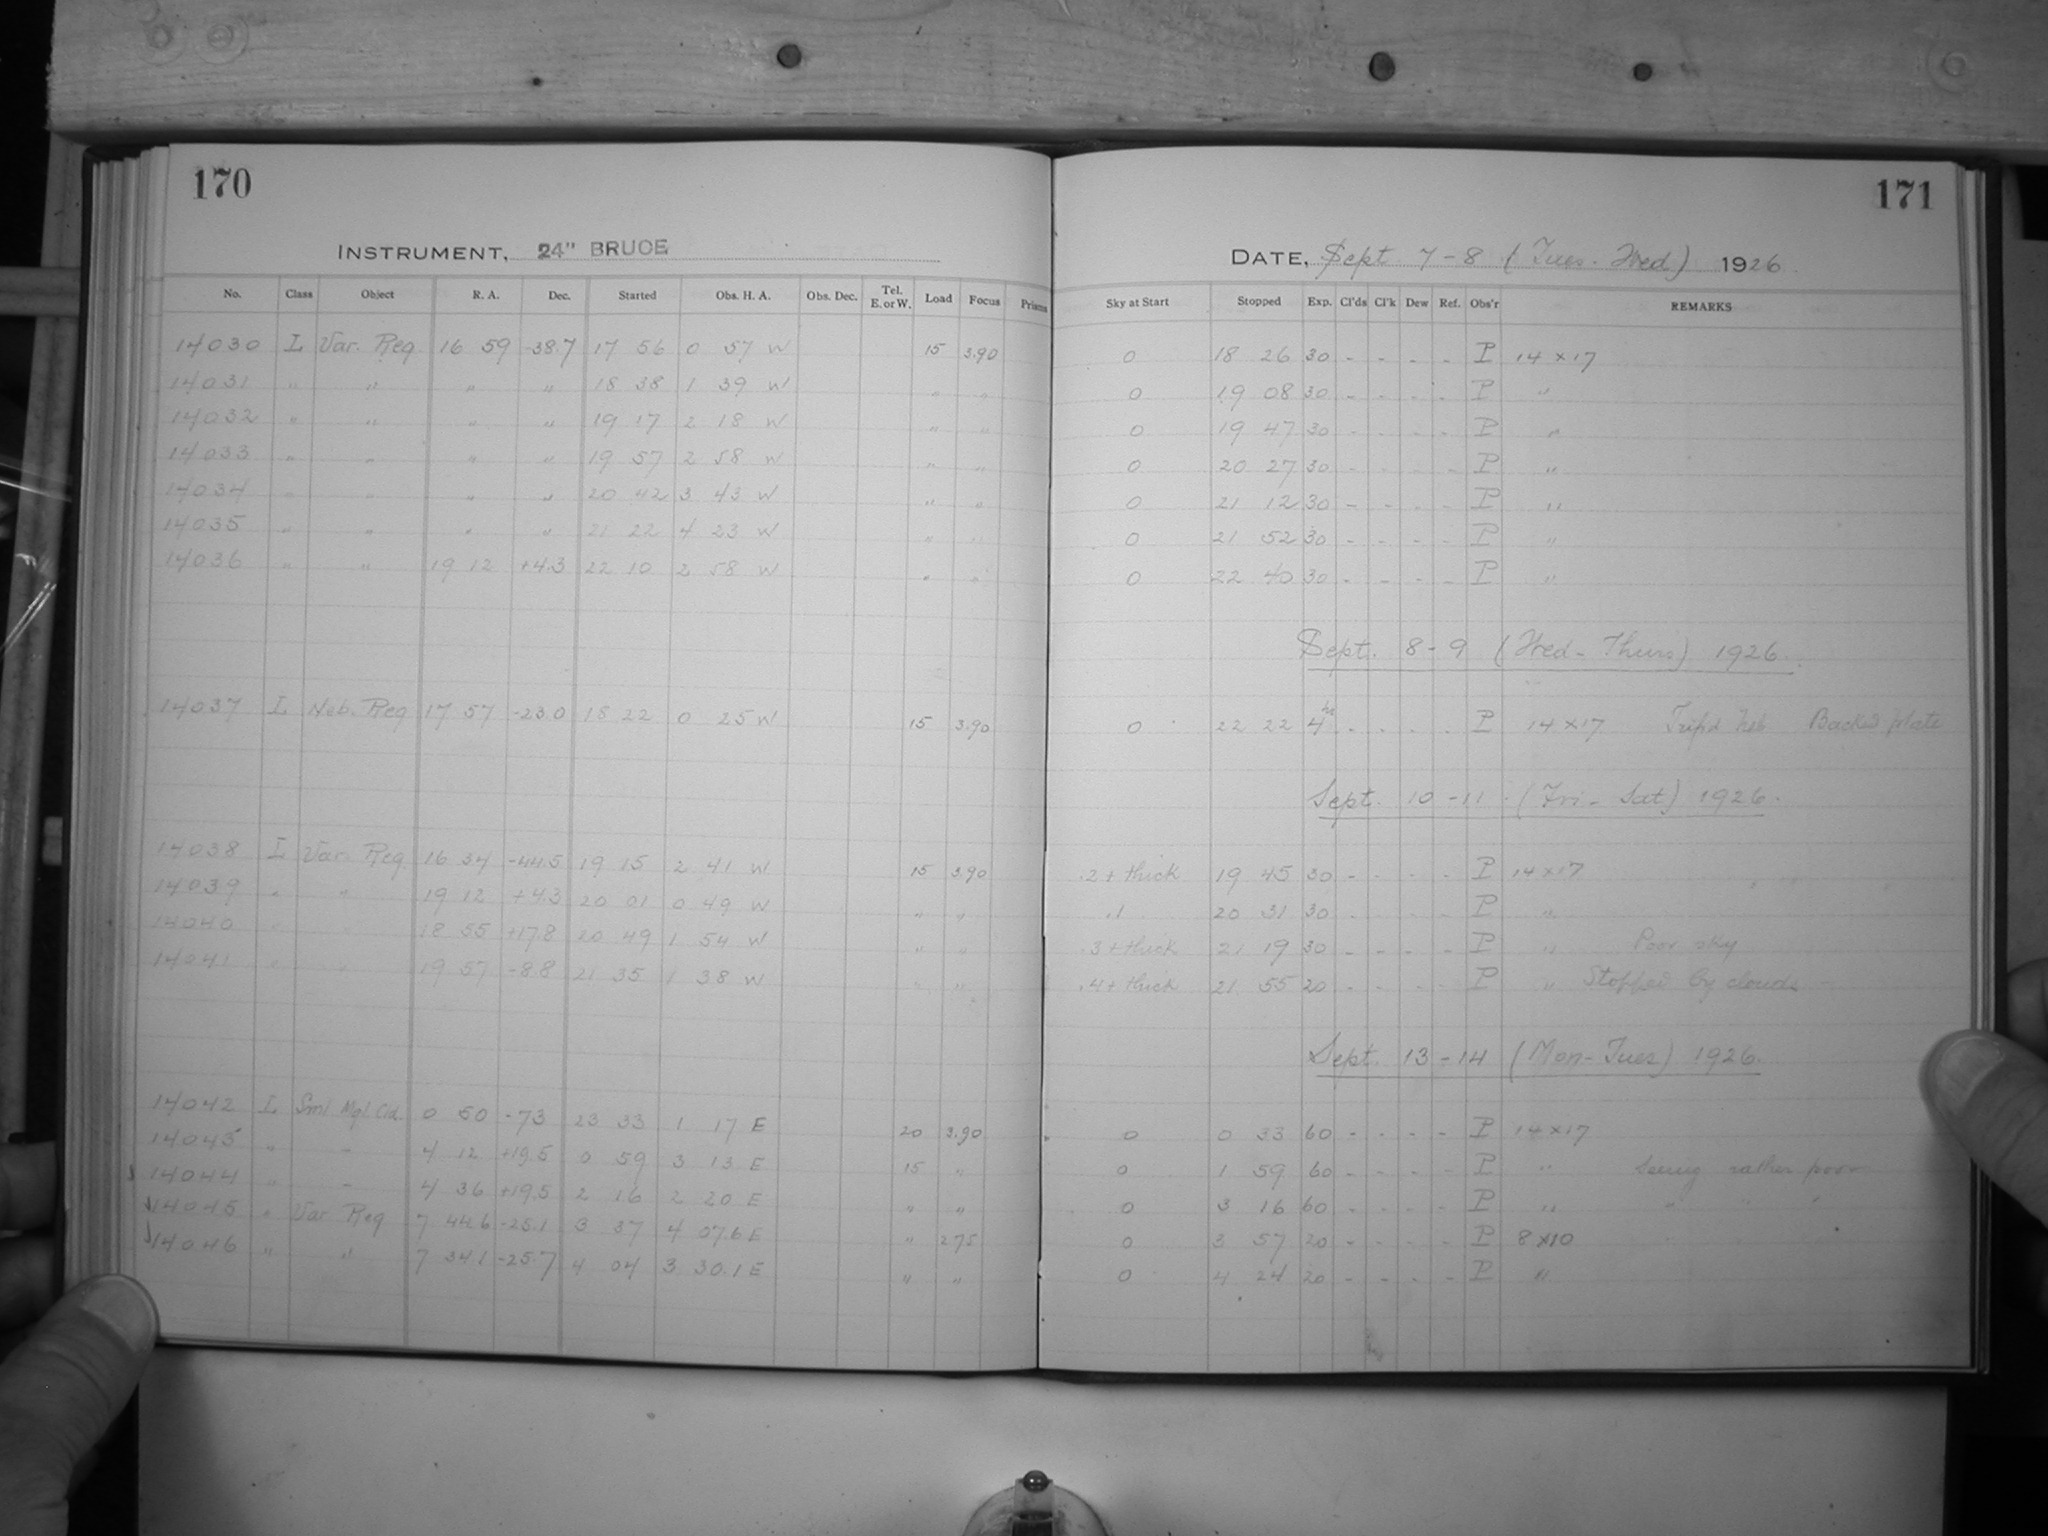 170
171
INSTRUMENT, 24" BRUCE
DATE, Sept 7-8 (Tues-Wed) 1926
No. Class Object R. A. Dec. Started Obs. H. A. Obs. Dec. Tel. E. or W. Load Focus Prisms Sky at Start Stopped Exp. Cl'ds Cl'k Dew Ref. Obs'r REMARKS
14030 I Var. Reg. 16 59 -38.7 17 56 0 57 W 15 3.90 0 18 26 30 - - - - P 14 x 17
14031 " " " " 18 38 1 39 W " " 0 19 08 30 - - - - P "
14032 " " " " 19 17 2 18 W " " 0 19 47 30 - - - - P "
14033 " " " " 19 57 2 58 W " " 0 20 27 30 - - - - P "
14034 " " " " 20 42 3 43 W " " 0 21 12 30 - - - - P "
14035 " " " " 21 22 4 23 W " " 0 21 52 30 - - - - P "
14036 " " 19 12 +4.3 22 10 2 58 W " " 0 22 40 30 - - - - P "
Sept. 8-9 (Wed-Thurs) 1926.
14037 I Neb. Reg 17 57 -23.0 18 22 0 25 W 15 3.90 0 22 22 4 hr - - - - P 14 x 17 Trifid Neb Backed plate
Sept. 10-11 (Fri-Sat) 1926.
14038 I Var. Reg 16 34 -44.5 19 15 2 41 W 15 3.90 .2 + thick 19 45 30 - - - - P 14 x 17
14039 " " 19 12 +4.3 20 01 0 49 W " " .1 20 31 30 - - - - P "
14040 " " 18 55 +17.8 20 49 1 54 W " " .3 + thick 21 19 30 - - - - P " Poor sky
14041 " " 19 57 -8.8 21 35 1 38 W " " .4 + thick 21 55 20 - - - - P " Stopped by clouds
Sept. 13-14 (Mon-Tues) 1926.
14042 I Sml Mgl Cld 0 50 -73 23 33 1 17 E 20 3.90 0 0 33 60 - - - - P 14 x 17
14043 " " 4 12 +19.5 0 59 3 13 E 15 " 0 1 59 60 - - - - P " Seeing rather poor
14044 " " 4 36 +19.5 2 16 2 20 E " " 0 3 16 60 - - - - P " " " "
14045 " Var Reg 7 44.6 -25.1 3 37 4 07.6 E " 2.75 0 3 57 20 - - - - P 8 x 10
14046 " " 7 34.1 -25.7 4 04 3 30.1 E " " 0 4 24 20 - - - - P "